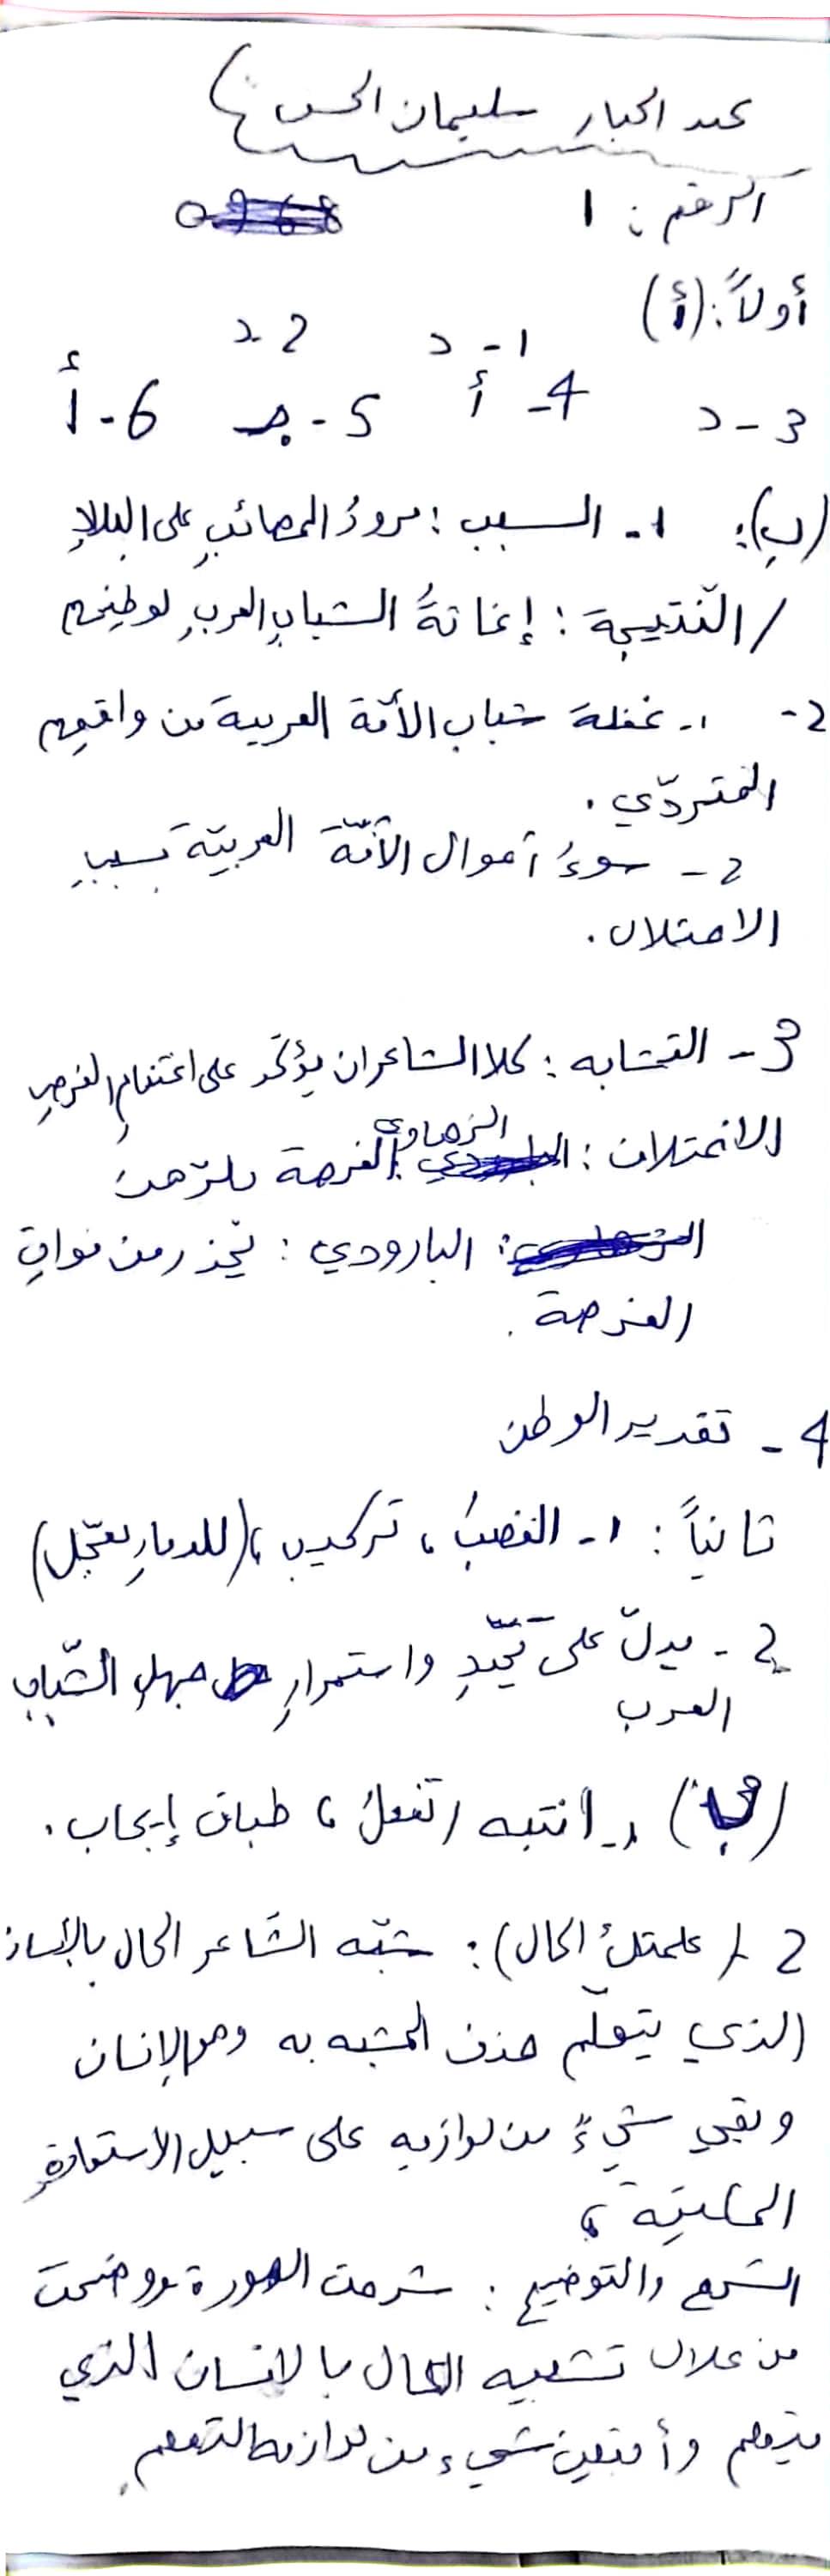 عبد الجبار سليمان الحسن
الرقم: 1
أولاً: (أ)
1 - د   2 - د
3 - د   4 - أ   5 - جـ   6 - أ
(ب): 1 - السبب: مرورُ المصائبِ على البلادِ
/ النّتيجة: إغاثةُ الشبابِ العربِ لوطنِهم
2 - 1 - غفلة شباب الأمّة العربية من واقعِهم
المتردّي.
2 - سوءُ أحوال الأمّة العربيّة بسببِ
الاحتلال.
3 - التشابه: كلا الشاعران يؤكّد على اغتنامِ الفرصِ
الاختلاف: الزهاوي: الفرصة
البارودي: يحذر من فواتِ
الفرصة.
4 - تقدير الوطن
ثانياً: 1 - الغضبُ، تركيب، (للدمارِ تعجّل)
2 - يدلّ على واستمرارِ جهلِ الشّبابِ
العرب
(ب) 1 - انتبه / تغفلُ، طباق إيجاب.
2 / (علمتكُ الحال): شبّه الشّاعر الحال بالإنسان
الذي يتعلّم حذف المشبه به وهو الإنسان
وبقي شيءٌ من لوازمِه على سبيل الاستعارةِ
المكنيّة،
الشرح والتوضيح: شرحت الصورة ووضحت
من خلال تشبيه الحال بالانسان الذي
يتعلم وأ شيء من لوازمه التعلم.